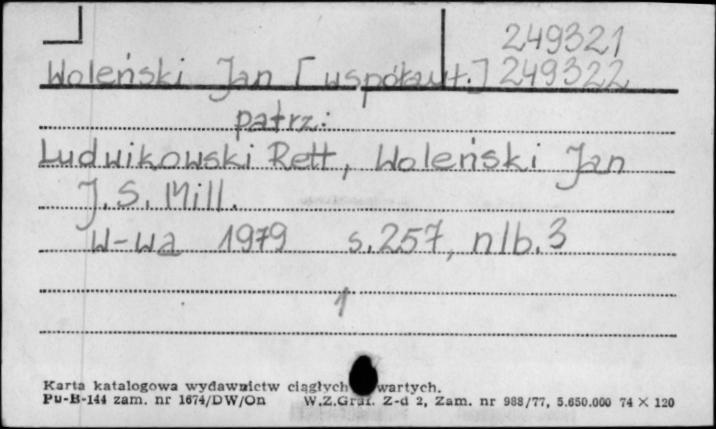 249321
Woleński Jan [współaut.] 249322
patrz:
Ludwikowski Rett, Woleński Jan
J.S. Mill.
W-wa 1979 s.257, nlb.3
Karta katalogowa wydawnictw ciągłych wartych.
Pu-B-144 zam. nr 1674/DW/On W.Z.Graf. Z-d 2, Zam. nr 988/77, 5.650.000 74 × 120